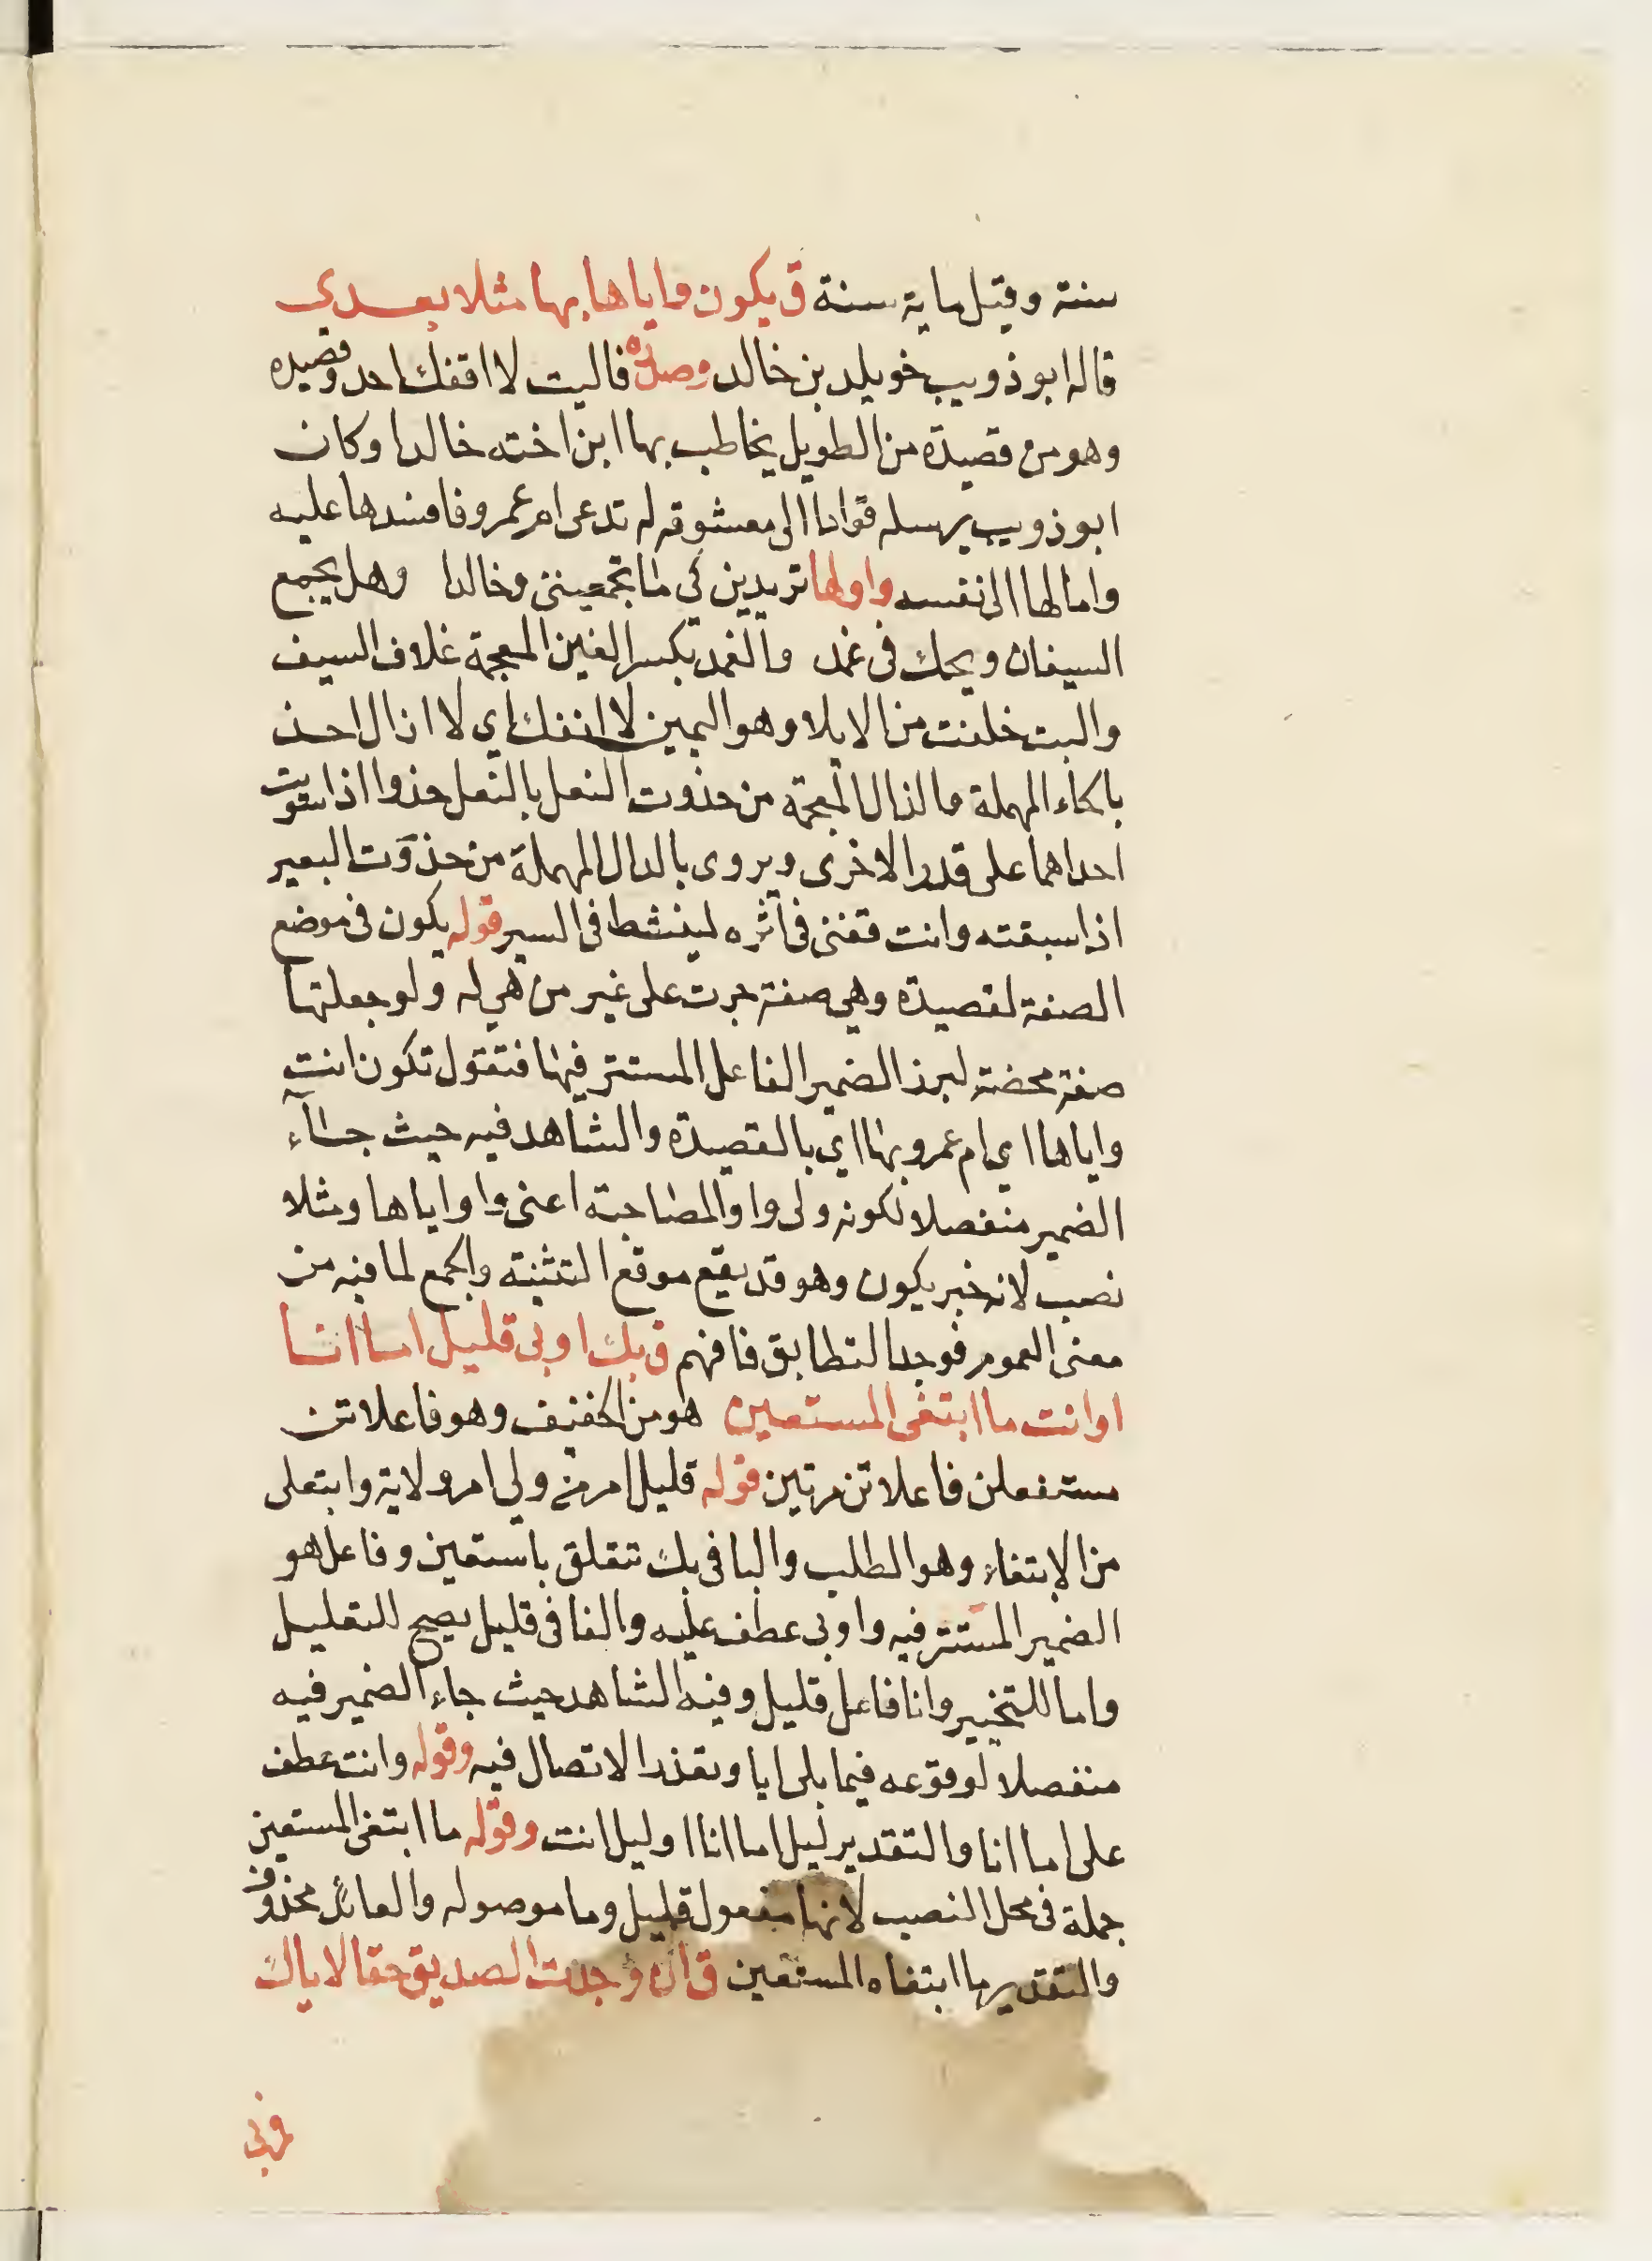 سنة وقيل ماية سنة ق يكون واياها بها مثلا بعدي
قاله ابو ذويب خويلد بن خالد وصدره فاليت لا انفك احد وقصيده
وهو من قصيدة من الطويل يخاطب بها ابن اخته خالدا وكان
ابو ذويب يرسله قوادا الى معشوقه له تدعى ام عمرو فافسدها عليه
وامالها الى نفسه واولها تريدين كي ما تجمعينى وخالدا وهل يجمع
السيفان ويحك فى غمد والغمد بكسر الغين المعجمة غلاف السيف
واليت حلفت من الايلا وهو اليمين لا انفك اي لا ازال احذ
بالحاء المهملة والذال المعجمة من حذوت النعل بالنعل حذوا اذا سويت
احداهما على قدر الاخرى ويروى بالدال المهملة من حذوت البعير
اذا سبقته وانت تغنى فى اثره لينشط فى السير قوله يكون فى موضع
الصفة لقصيدة وهي صفة جرت على غير من هي له ولو جعلتها
صفة محضة لبرز الضمير الفاعل المستتر فيها فتقول تكون انت
واياها اي ام عمرو بها اي بالقصيدة والشاهد فيه حيث جاء
الضمير منفصلا لكونه ولى واو المصاحبة اعنى واو اياها ومثلا
نصب لانه خبر يكون وهو قد يقع موقع التثنية والجمع لما فيه من
معنى العموم فوجد التطابق فافهم ق بك او بى قليل اما انا
او انت ما ابتغى المستعين هو من الخفيف وهو فاعلاتن
مستفعلن فاعلاتن مرتين قوله قليل امر من ولي امر ولاية وابتغى
من الابتغاء وهو الطلب والبا فى بك تتعلق باستعين وفاعل هو
الضمير المستتر فيه واو بى عطف عليه والفا فى قليل يصح للتعليل
واما للتخيير وانا فاعل قليل وفيه الشاهد حيث جاء الضمير فيه
منفصلا لوقوعه فيما يلى ايا وتعذر الاتصال فيه وقوله وانت عطف
على اما انا والتقدير ليل اما انا او ليل انت وقوله ما ابتغى المستعين
جملة فى محل النصب لانها مفعول قليل وما موصوله والعائد محذوف
والتقدير ما ابتغاه المستعين ق ان وجدت الصديق حقا لاياك